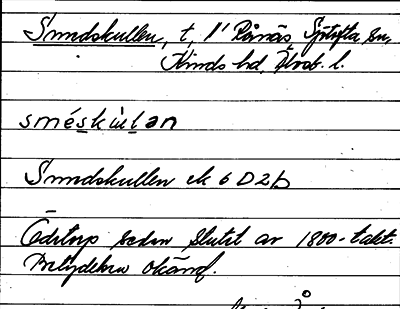 Smedskullen, t, 1/1 Rånäs Sjötofta sn,
Kinds hd, Älvsb. l.
smèskùlan
Smedskullen ek 6D2b
Ödetorp sedan slutet av 1800-talet.
Betydelse okänd.